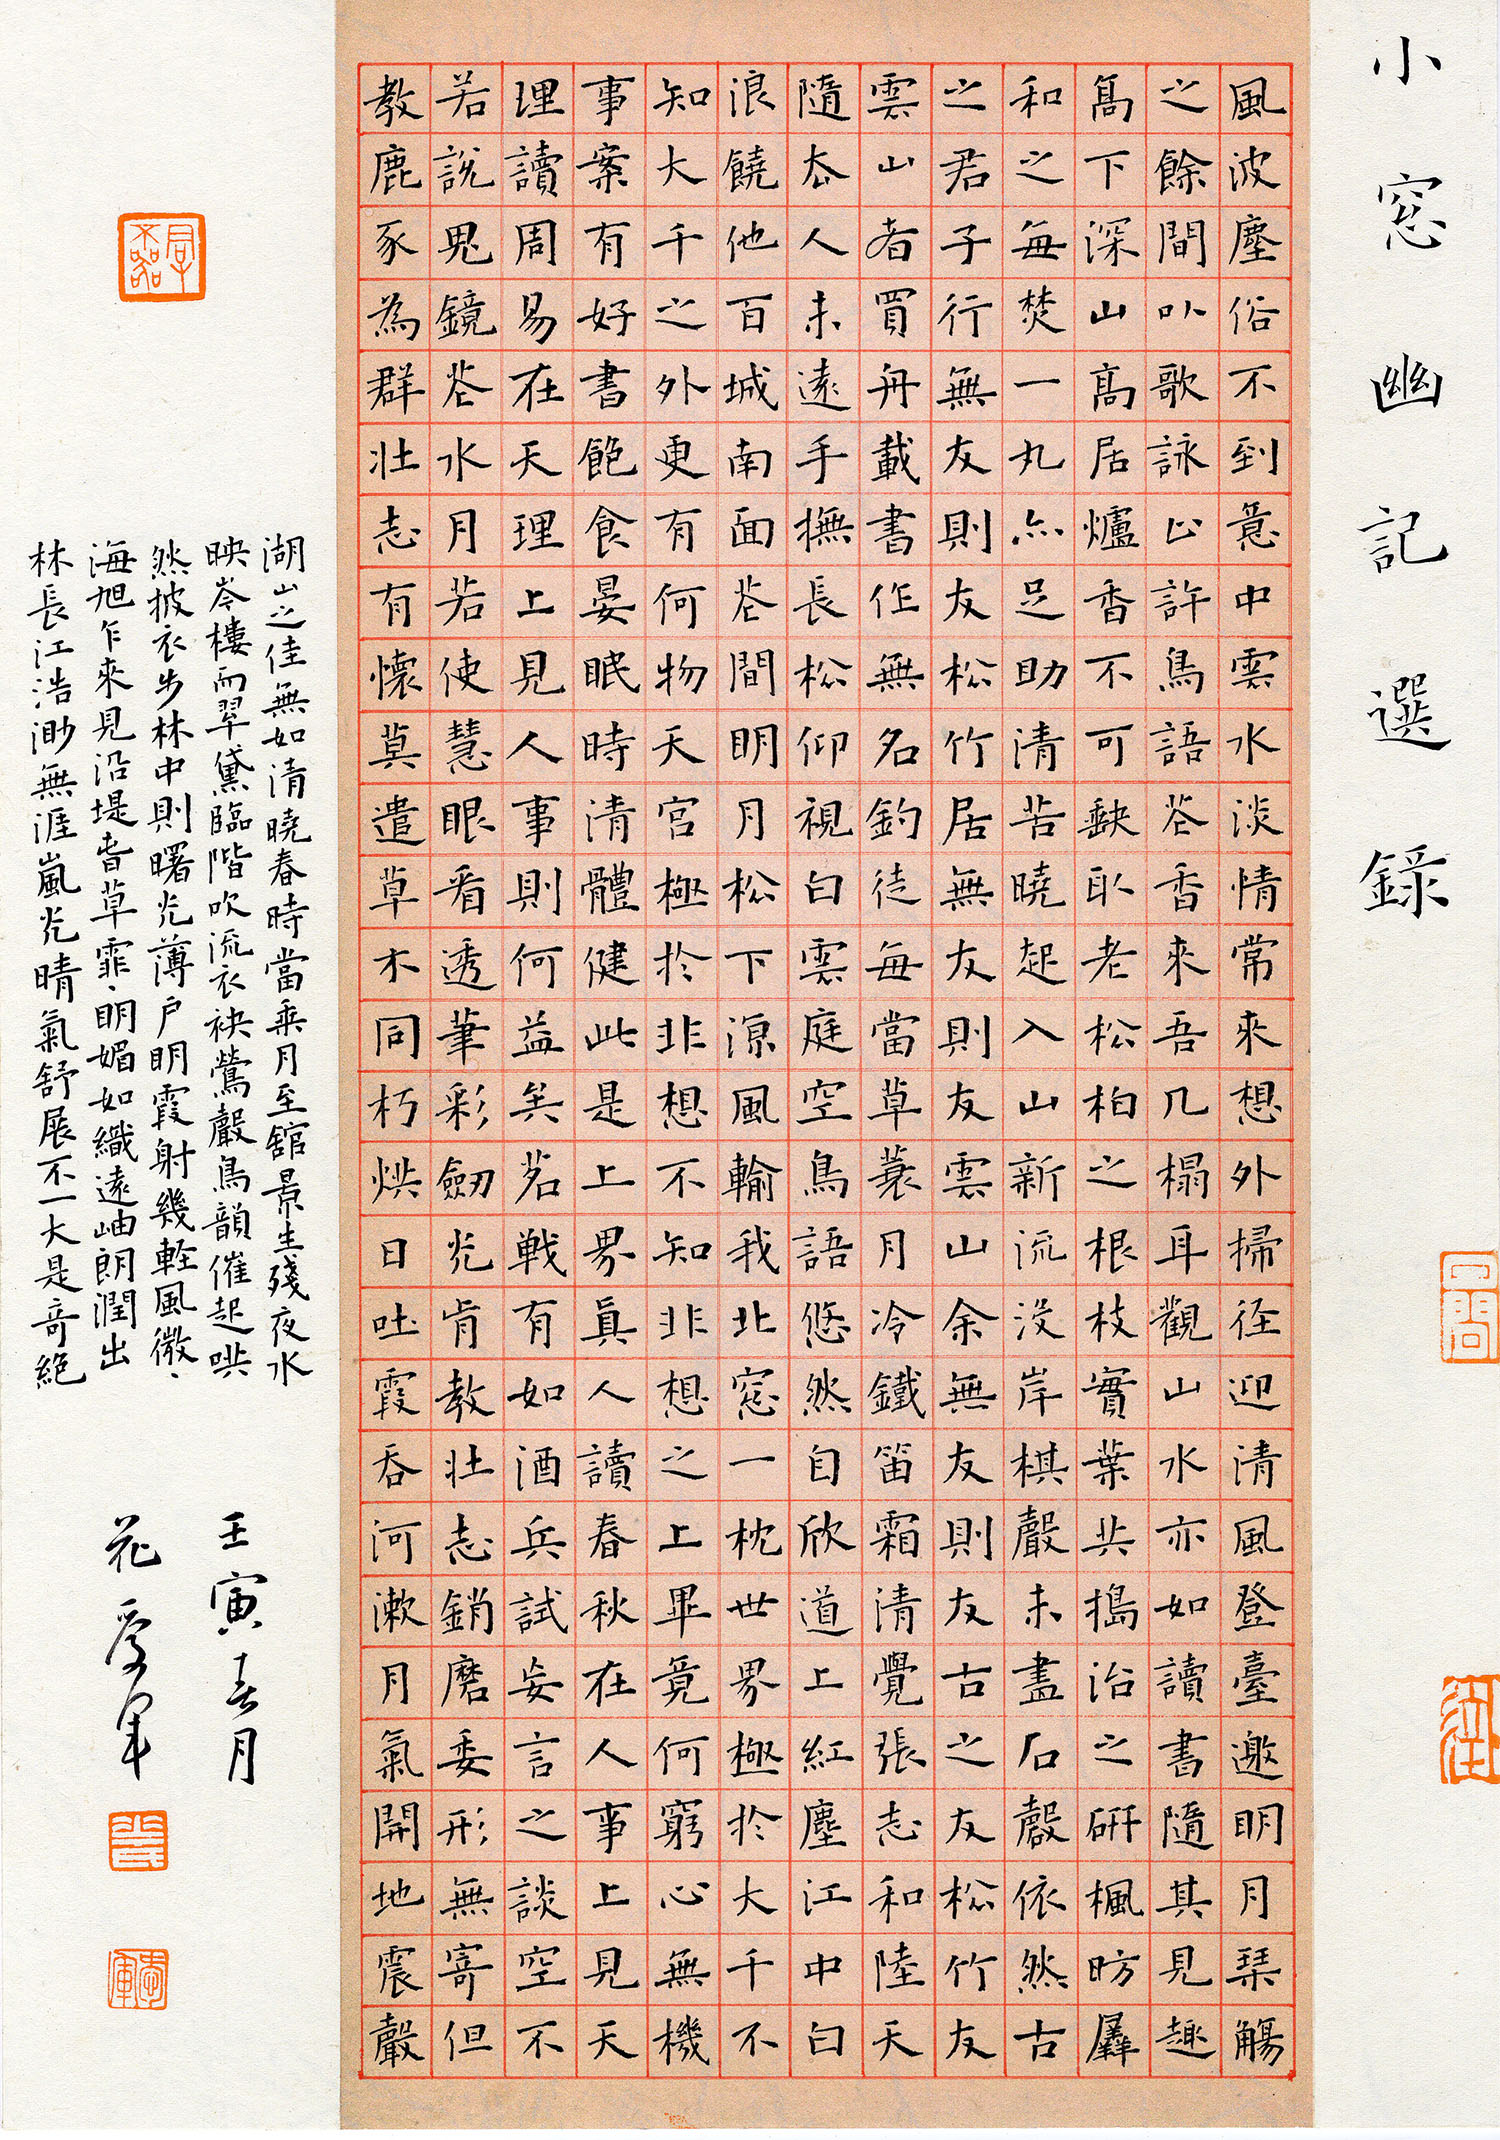 小窓幽記選錄
風波塵俗不到意中雲水淡情常來想外掃徑迎清風登臺邀明月琴觴
之餘間以歌詠止許鳥語花香來吾几榻耳觀山水亦如讀書隨其見趣
高下深山高居爐香不可缺取老松柏之根枝實葉共搗治之研楓昉羼
和之每焚一丸亦足助清苦曉起入山新流沒岸棋聲未盡石磬依然古
之君子行無友則友松竹居無友則友雲山余無友則友古之友松竹友
雲山者買舟載書作無名釣徒每當草蓑月冷鐵笛霜清覺張志和陸天
隨去人未遠手撫長松仰視白雲庭空鳥語悠然自欣道上紅塵江中白
浪饒他百城南面花間明月松下涼風輸我北窓一枕世界極於大千不
知大千之外更有何物天宮極於非想不知非想之上畢竟何窮心無機
事案有好書飽食晏眠時清體健此是上界真人讀春秋在人事上見天
理讀周易在天理上見人事則何益矣茗戰有如酒兵試妄言之談空不
若說鬼鏡花水月若使慧眼看透筆彩劍光肯教壯志銷磨委形無寄但
教鹿豕為群壯志有懷莫遣草木同朽烘日吐霞吞河漱月氣開地震聲
湖山之佳無如清曉春時當乘月至舘景生殘夜水
映岑樓而翠黛臨階吹流衣袂鶯聲鳥韻催起哄
然披衣步林中則曙光薄户明霞射幾輕風微々
海旭乍來見沿堤春草霏々明媚如織遠岫朗潤出
林長江浩渺無涯嵐光晴氣舒展不一大是奇絕
壬寅春月
花愛軍